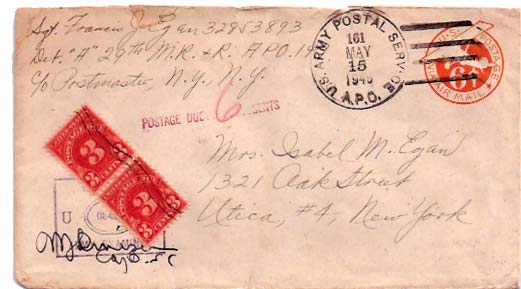 Sgt. Francis J. Egan 32853893
Det. "A" 29th M.R. & R. A.P.O. 14
c/o Postmaster, N.Y., N.Y.
U.S. ARMY POSTAL SERVICE
161
MAY
15
1945
A.P.O.
U.S. POSTAGE
6¢
VIA AIR MAIL
POSTAGE DUE 6 CENTS
3
CENTS
3
Mrs. Isabel M. Egan
1321 Oak Street
Utica, #4, New York
U